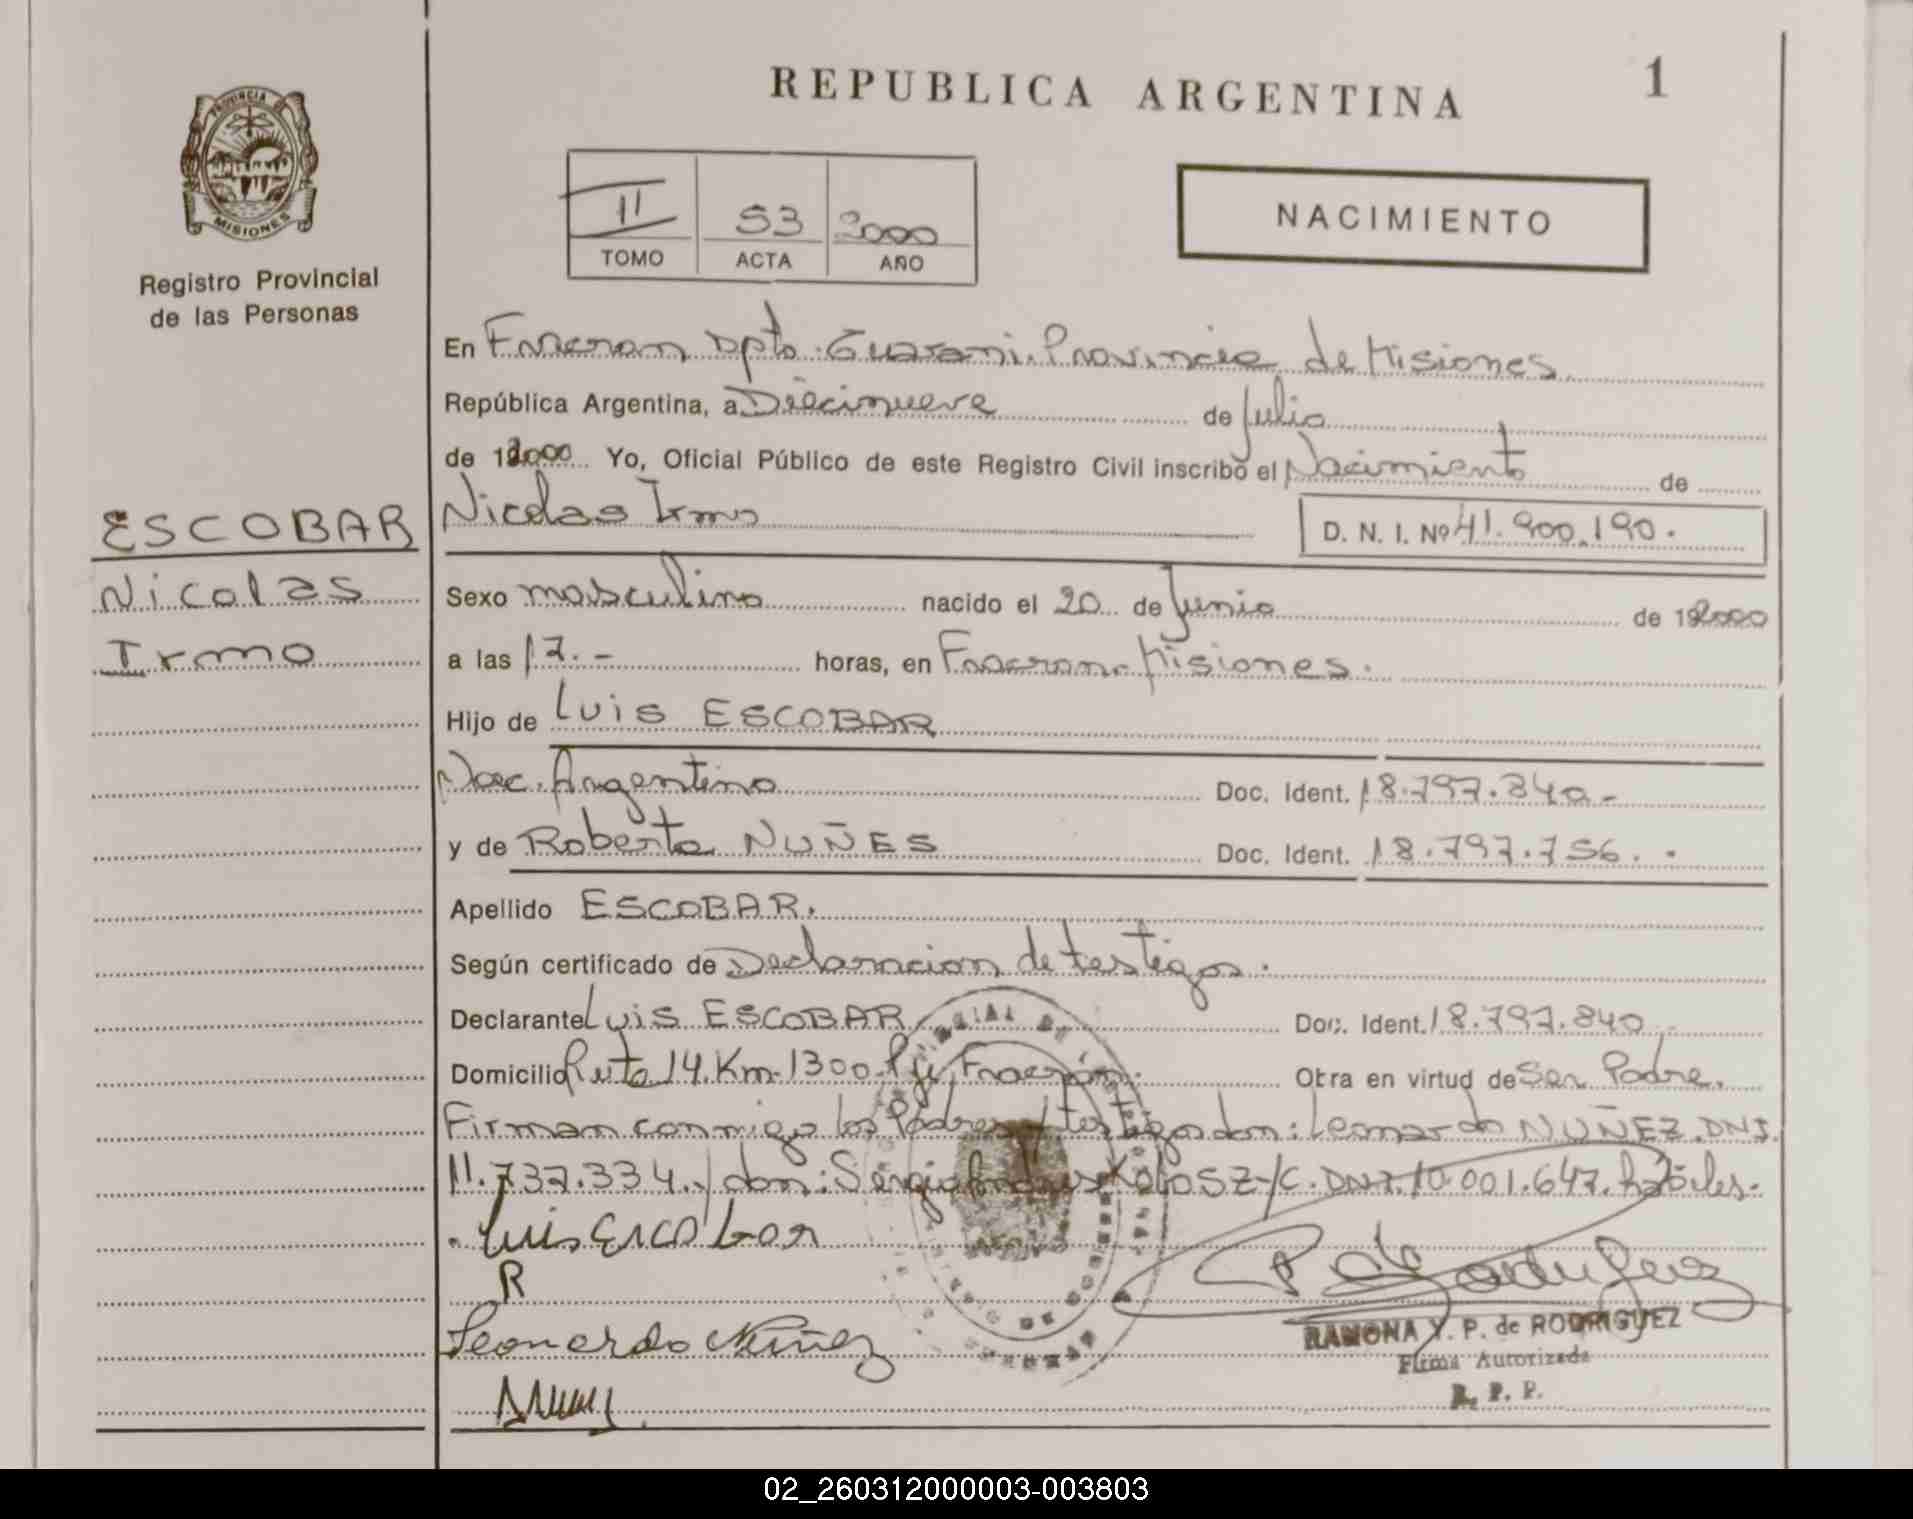 REPUBLICA ARGENTINA
1
PROVINCIA DE
MISIONES
Registro Provincial
de las Personas
II
TOMO
53
ACTA
2000
AÑO
NACIMIENTO
En Fracran Dpto. Guarani. Provincia de Misiones
República Argentina, a Diecinueve de Julio
de 2000 Yo, Oficial Público de este Registro Civil inscribo el Nacimiento de
Nicolas Irmo
D. N. I. Nº 41.900.190.
ESCOBAR
Nicolas
Irmo
Sexo masculino nacido el 20 de Junio de 2000
a las 17.- horas, en Fracran. Misiones.
Hijo de Luis ESCOBAR
Nac. Argentino Doc. Ident. 18.797.840-
y de Roberta NUÑES Doc. Ident. 18.797.756.
Apellido ESCOBAR.
Según certificado de Declaracion de testigos.
Declarante Luis ESCOBAR Doc. Ident. 18.797.840
Domicilio Ruta 14. Km. 1300. Pje Fracran. Obra en virtud de Ser Padre.
Firman conmigo los Padres y testigos don: Leonardo NUÑEZ. DNI.
11.737.334. y don: Sergio Andres DNI. 10.001.647. habiles.
Luis Escobar
R
Leonardo Nuñez
RAMONA Y. P. de RODRIGUEZ
Firma Autorizada
R. P. P.
02_260312000003-003803